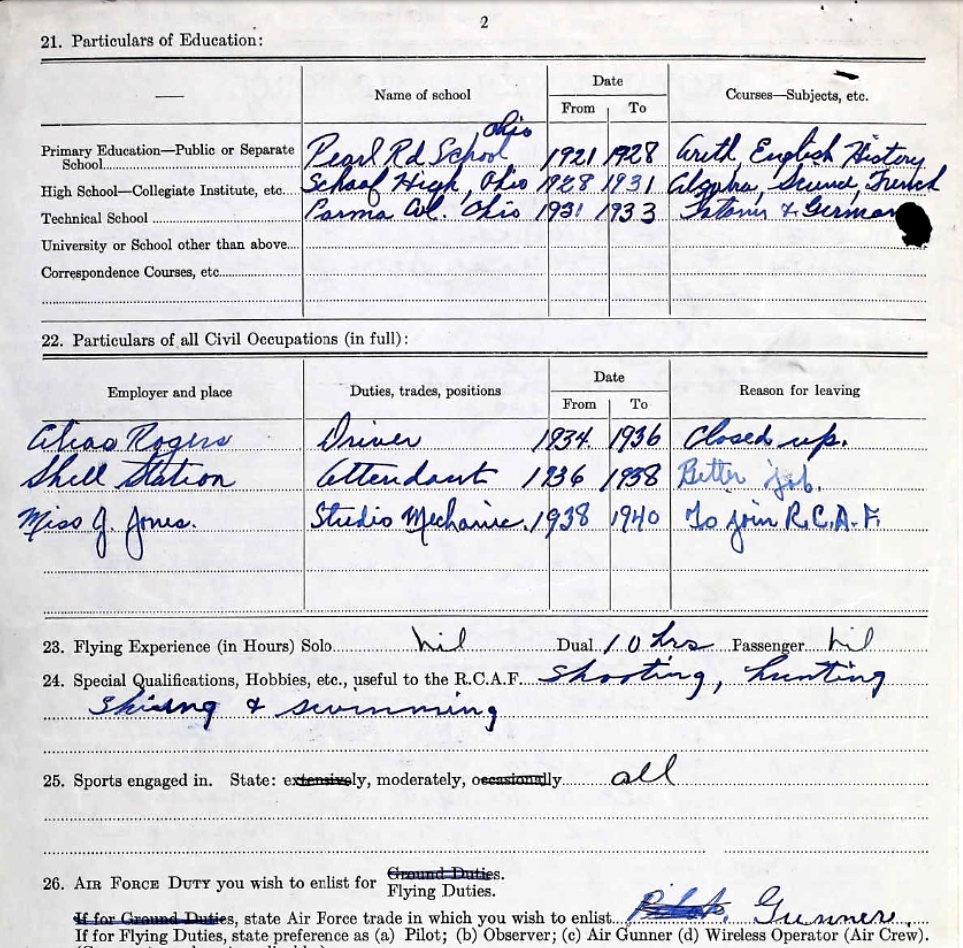 2
21. Particulars of Education:
— Name of school Date Courses—Subjects, etc.
From To
Ohio
Primary Education—Public or Separate School Pearl Rd School, 1921 1928 Arith, English History
High School—Collegiate Institute, etc. Schaaf High, Ohio 1928 1931 Algebra, French
Technical School Parma Ohio 1931 1933 & German
University or School other than above
Correspondence Courses, etc.
22. Particulars of all Civil Occupations (in full):
Employer and place Duties, trades, positions Date Reason for leaving
From To
Rogers Driver 1934 1936 Closed up.
Shell Station Attendant 1936 1938 Better job.
Miss J. Jones. Studio Mechanic. 1938 1940 To join R.C.A.F.
23. Flying Experience (in Hours) Solo nil Dual 10 hrs Passenger nil
24. Special Qualifications, Hobbies, etc., useful to the R.C.A.F. Shooting, hunting
Skiing & swimming
25. Sports engaged in. State: extensively, moderately, occasionally all
26. AIR FORCE DUTY you wish to enlist for Ground Duties.
Flying Duties.
If for Ground Duties, state Air Force trade in which you wish to enlist Pilot, Gunner.
If for Flying Duties, state preference as (a) Pilot; (b) Observer; (c) Air Gunner (d) Wireless Operator (Air Crew).